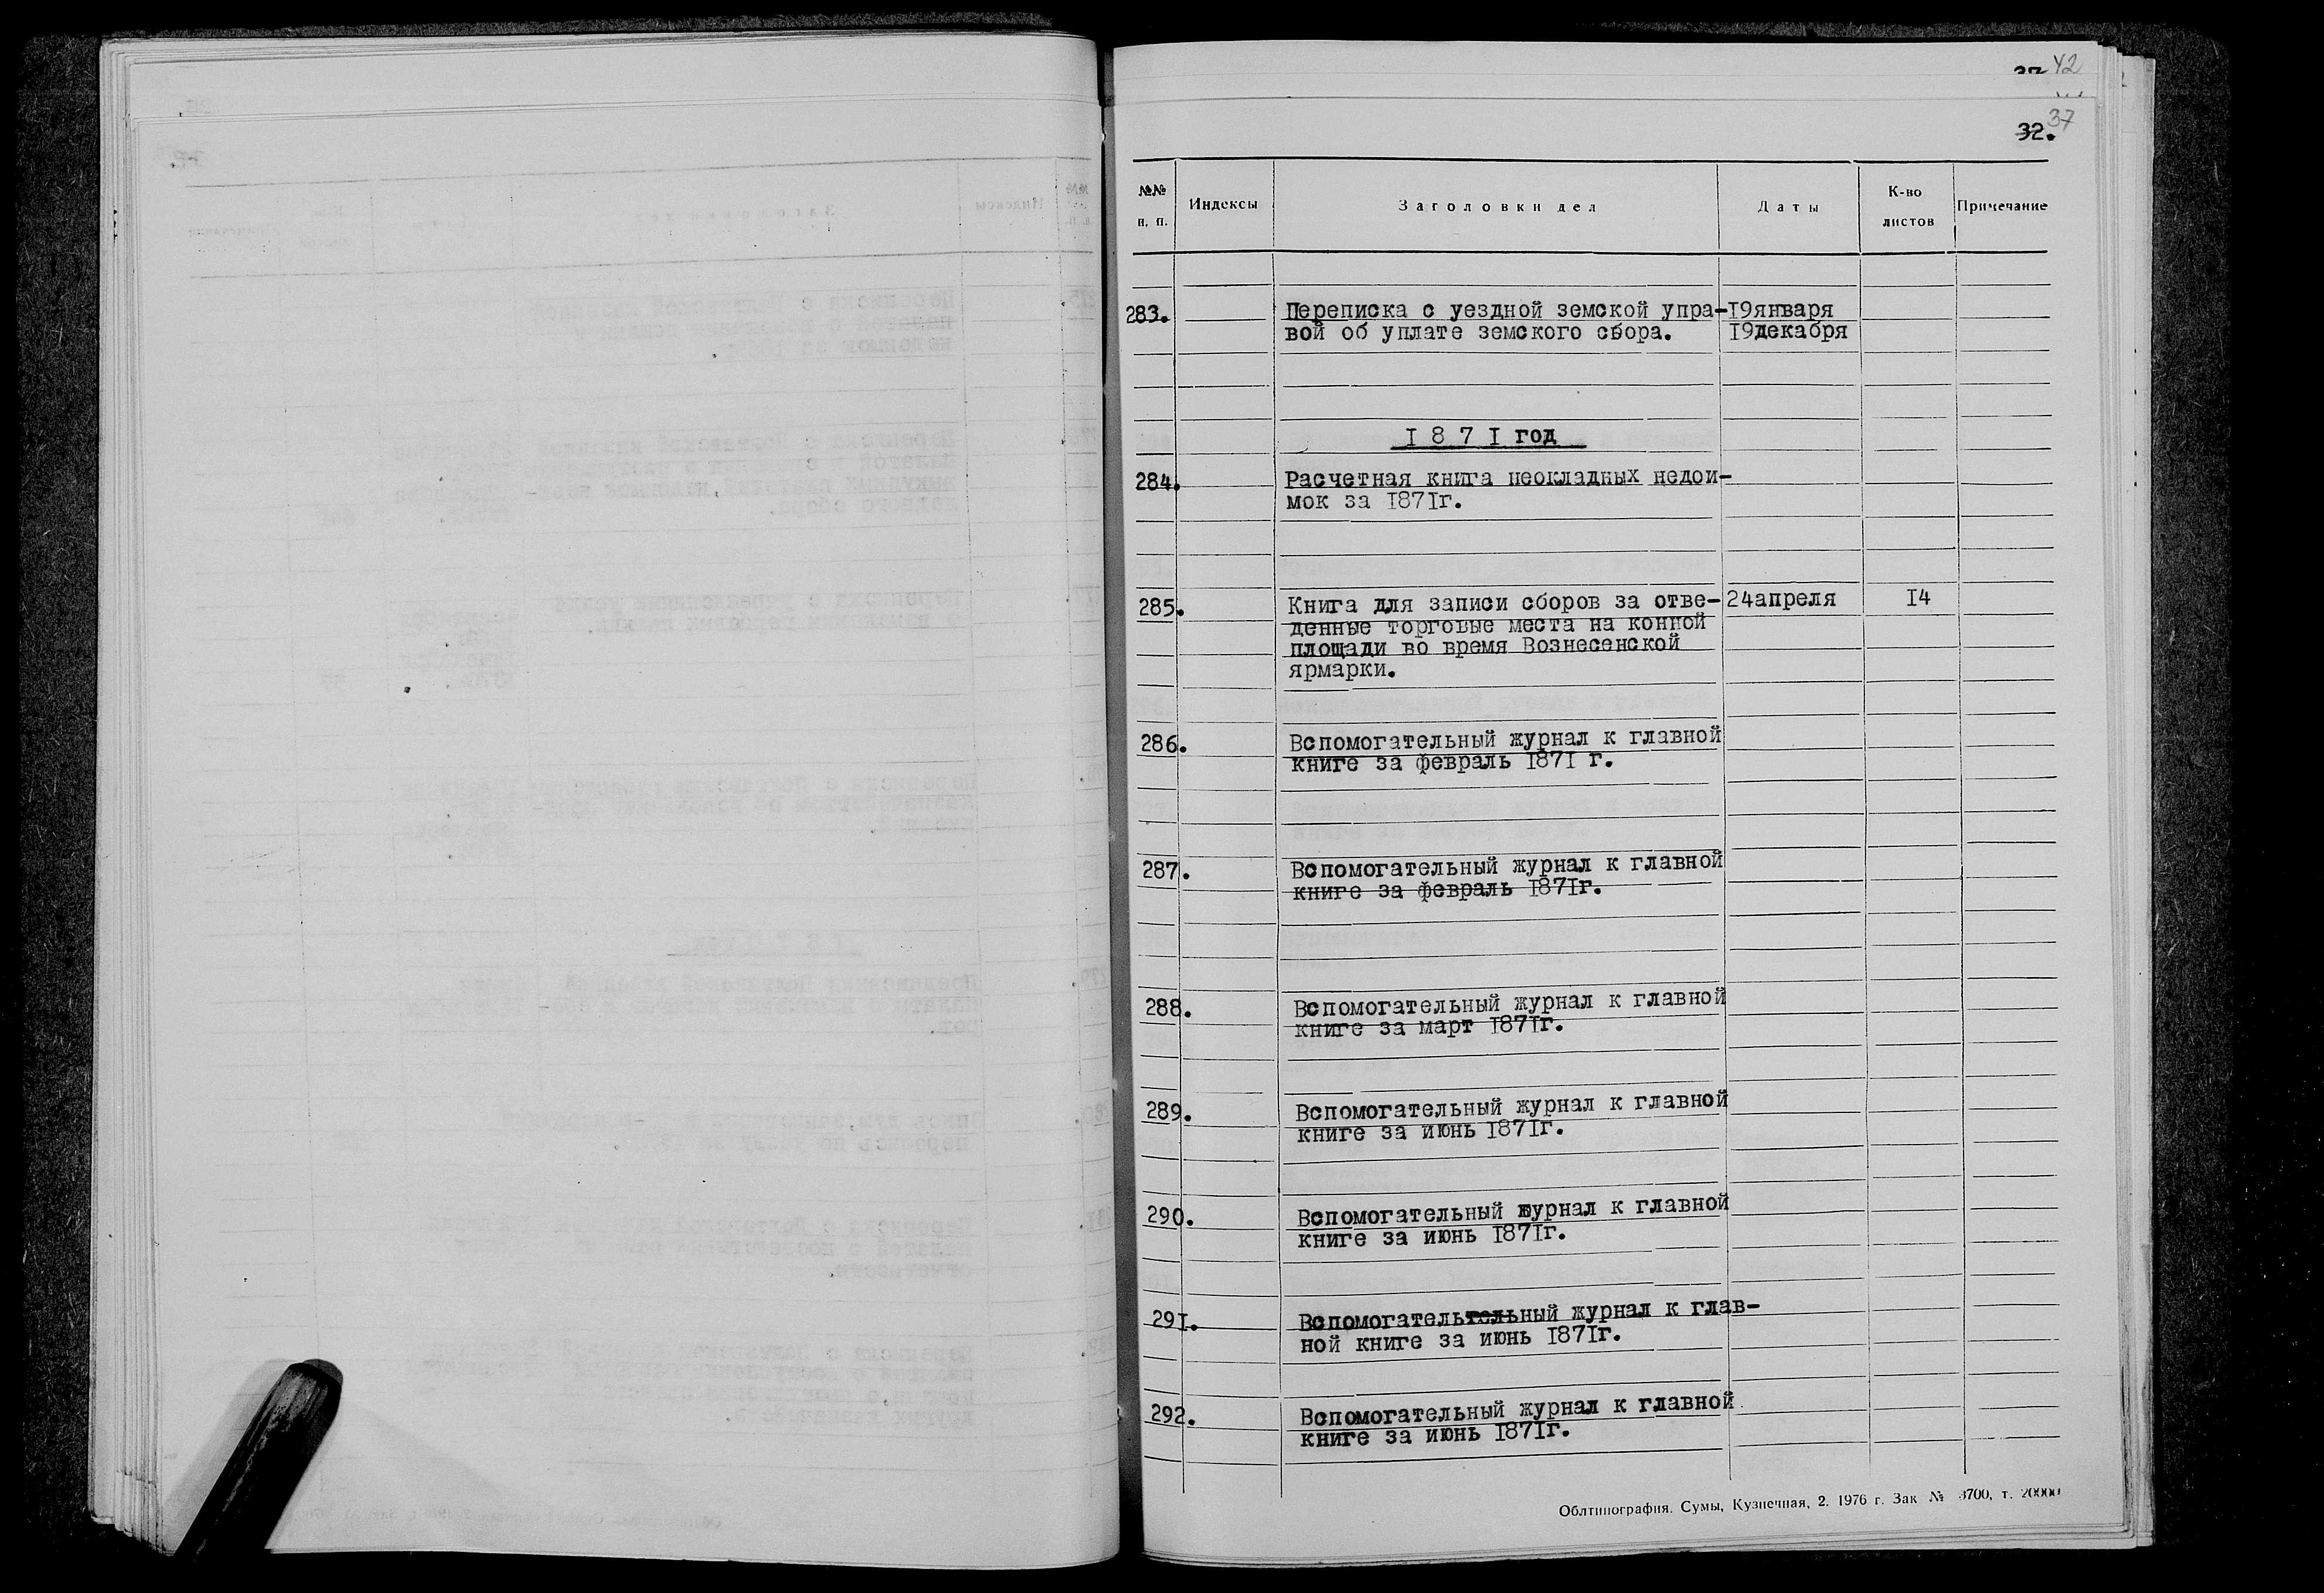 42
37
32.
№№
п. п.
Индексы
Заголовки дел
Даты
К-во
листов
Примечание
283. Переписка с уездной земской упра- 19января
вой об уплате земского сбора. 19декабря
1871 год
284. Расчетная книга неокладных недои-
мок за 1871г.
285. Книга для записи сборов за отве- 24апреля 14
денные торговые места на конной
площади во время Вознесенской
ярмарки.
286. Вспомогательный журнал к главной
книге за февраль 1871 г.
287. Вспомогательный журнал к главной
книге за февраль 1871г.
288. Вспомогательный журнал к главной
книге за март 1871г.
289. Вспомогательный журнал к главной
книге за июнь 1871г.
290. Вспомогательный журнал к главной
книге за июнь 1871г.
291. Вспомогательтельный журнал к глав-
ной книге за июнь 1871г.
292. Вспомогательный журнал к главной
книге за июнь 1871г.
Облтипография. Сумы, Кузнечная, 2. 1976 г. Зак № 3700, т. 20000